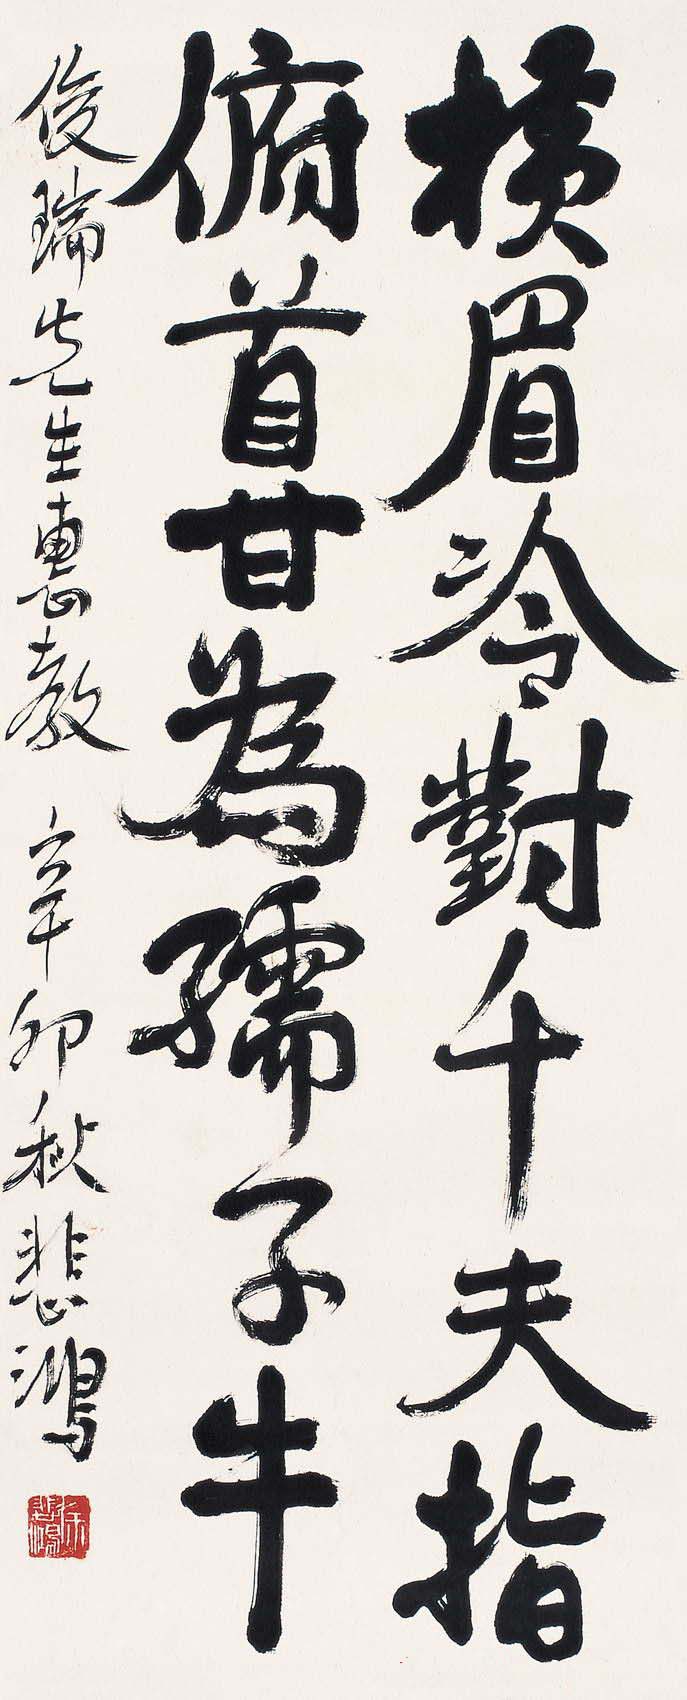 橫眉冷對千夫指
俯首甘為孺子牛
俊瑞先生惠教 辛卯秋 悲鴻
徐悲鴻